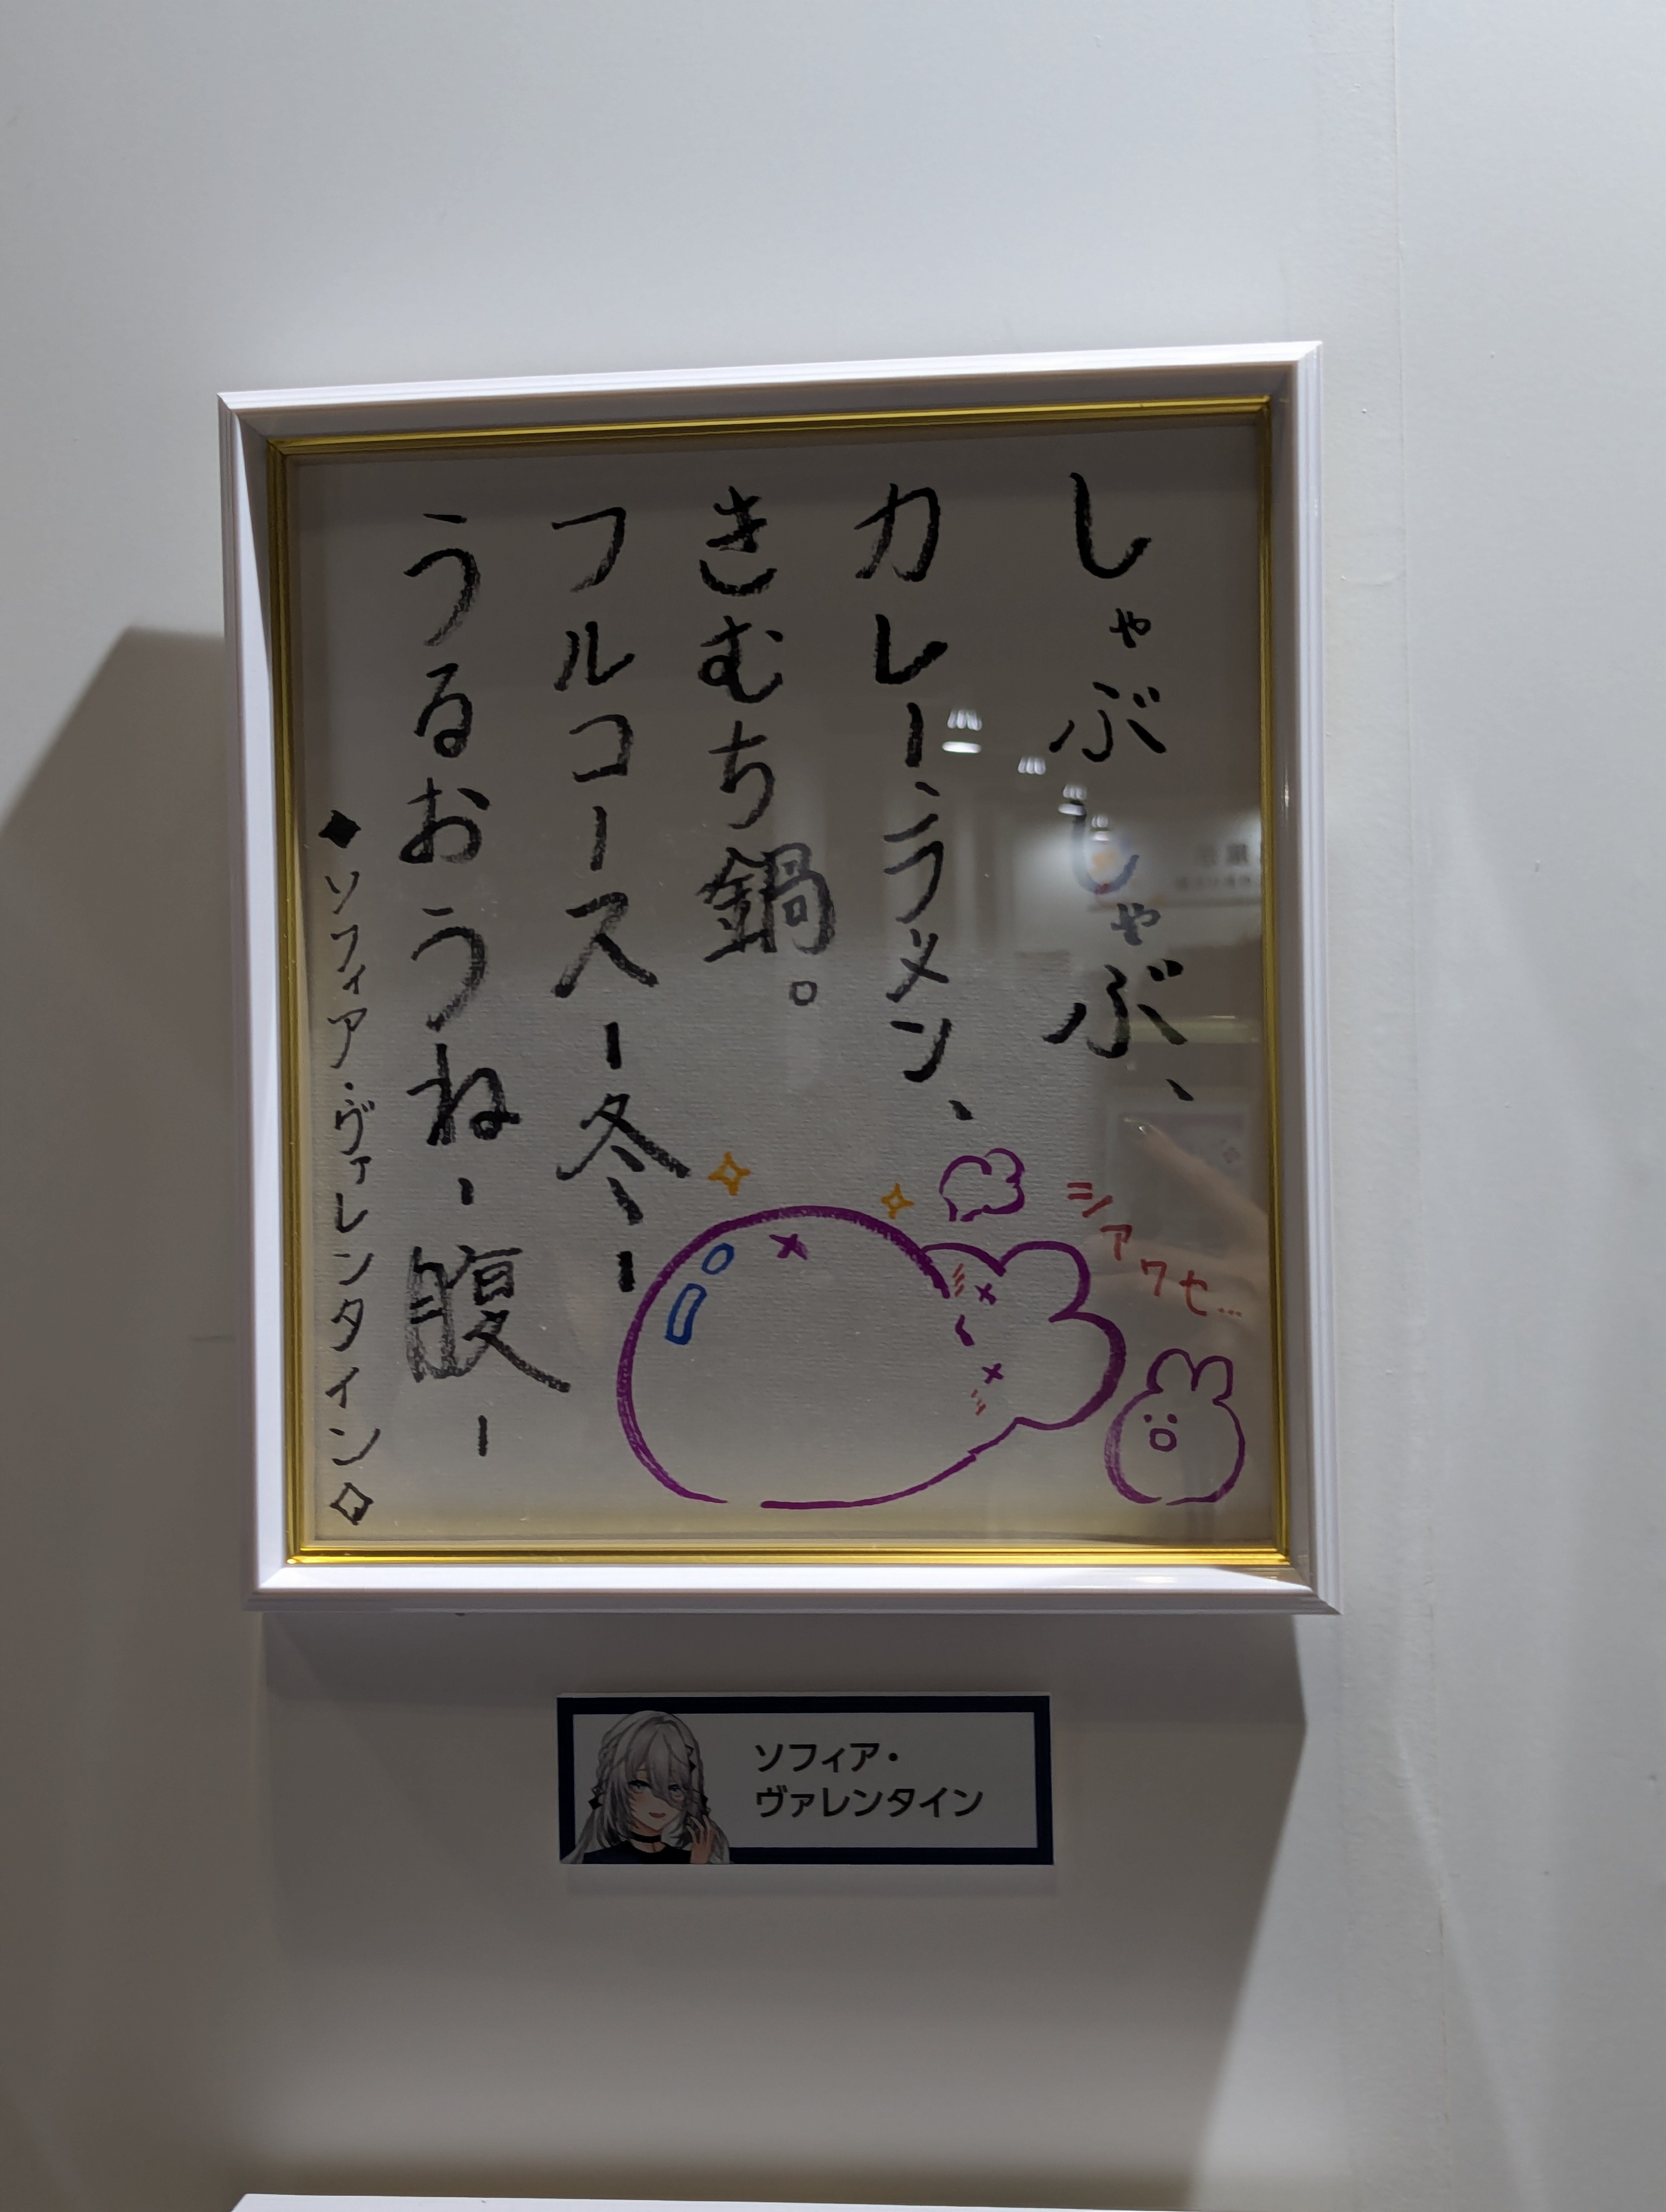 しゃぶしゃぶ、
カレーラーメン、
きむち鍋。
フルコースー冬ー
うるおうねー腹ー
◆ソフィア・ヴァレンタイン◇
シアワセ…
ソフィア・
ヴァレンタイン